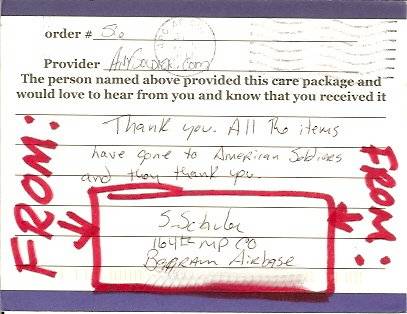 order #
Provider AnySoldier.com
The person named above provided this care package and
would love to hear from you and know that you received it
Thank you. All the items
have gone to American Soldiers
and they thank you.
FROM:
FROM:
S. Schuler
164th MP CO
Bagram Airbase